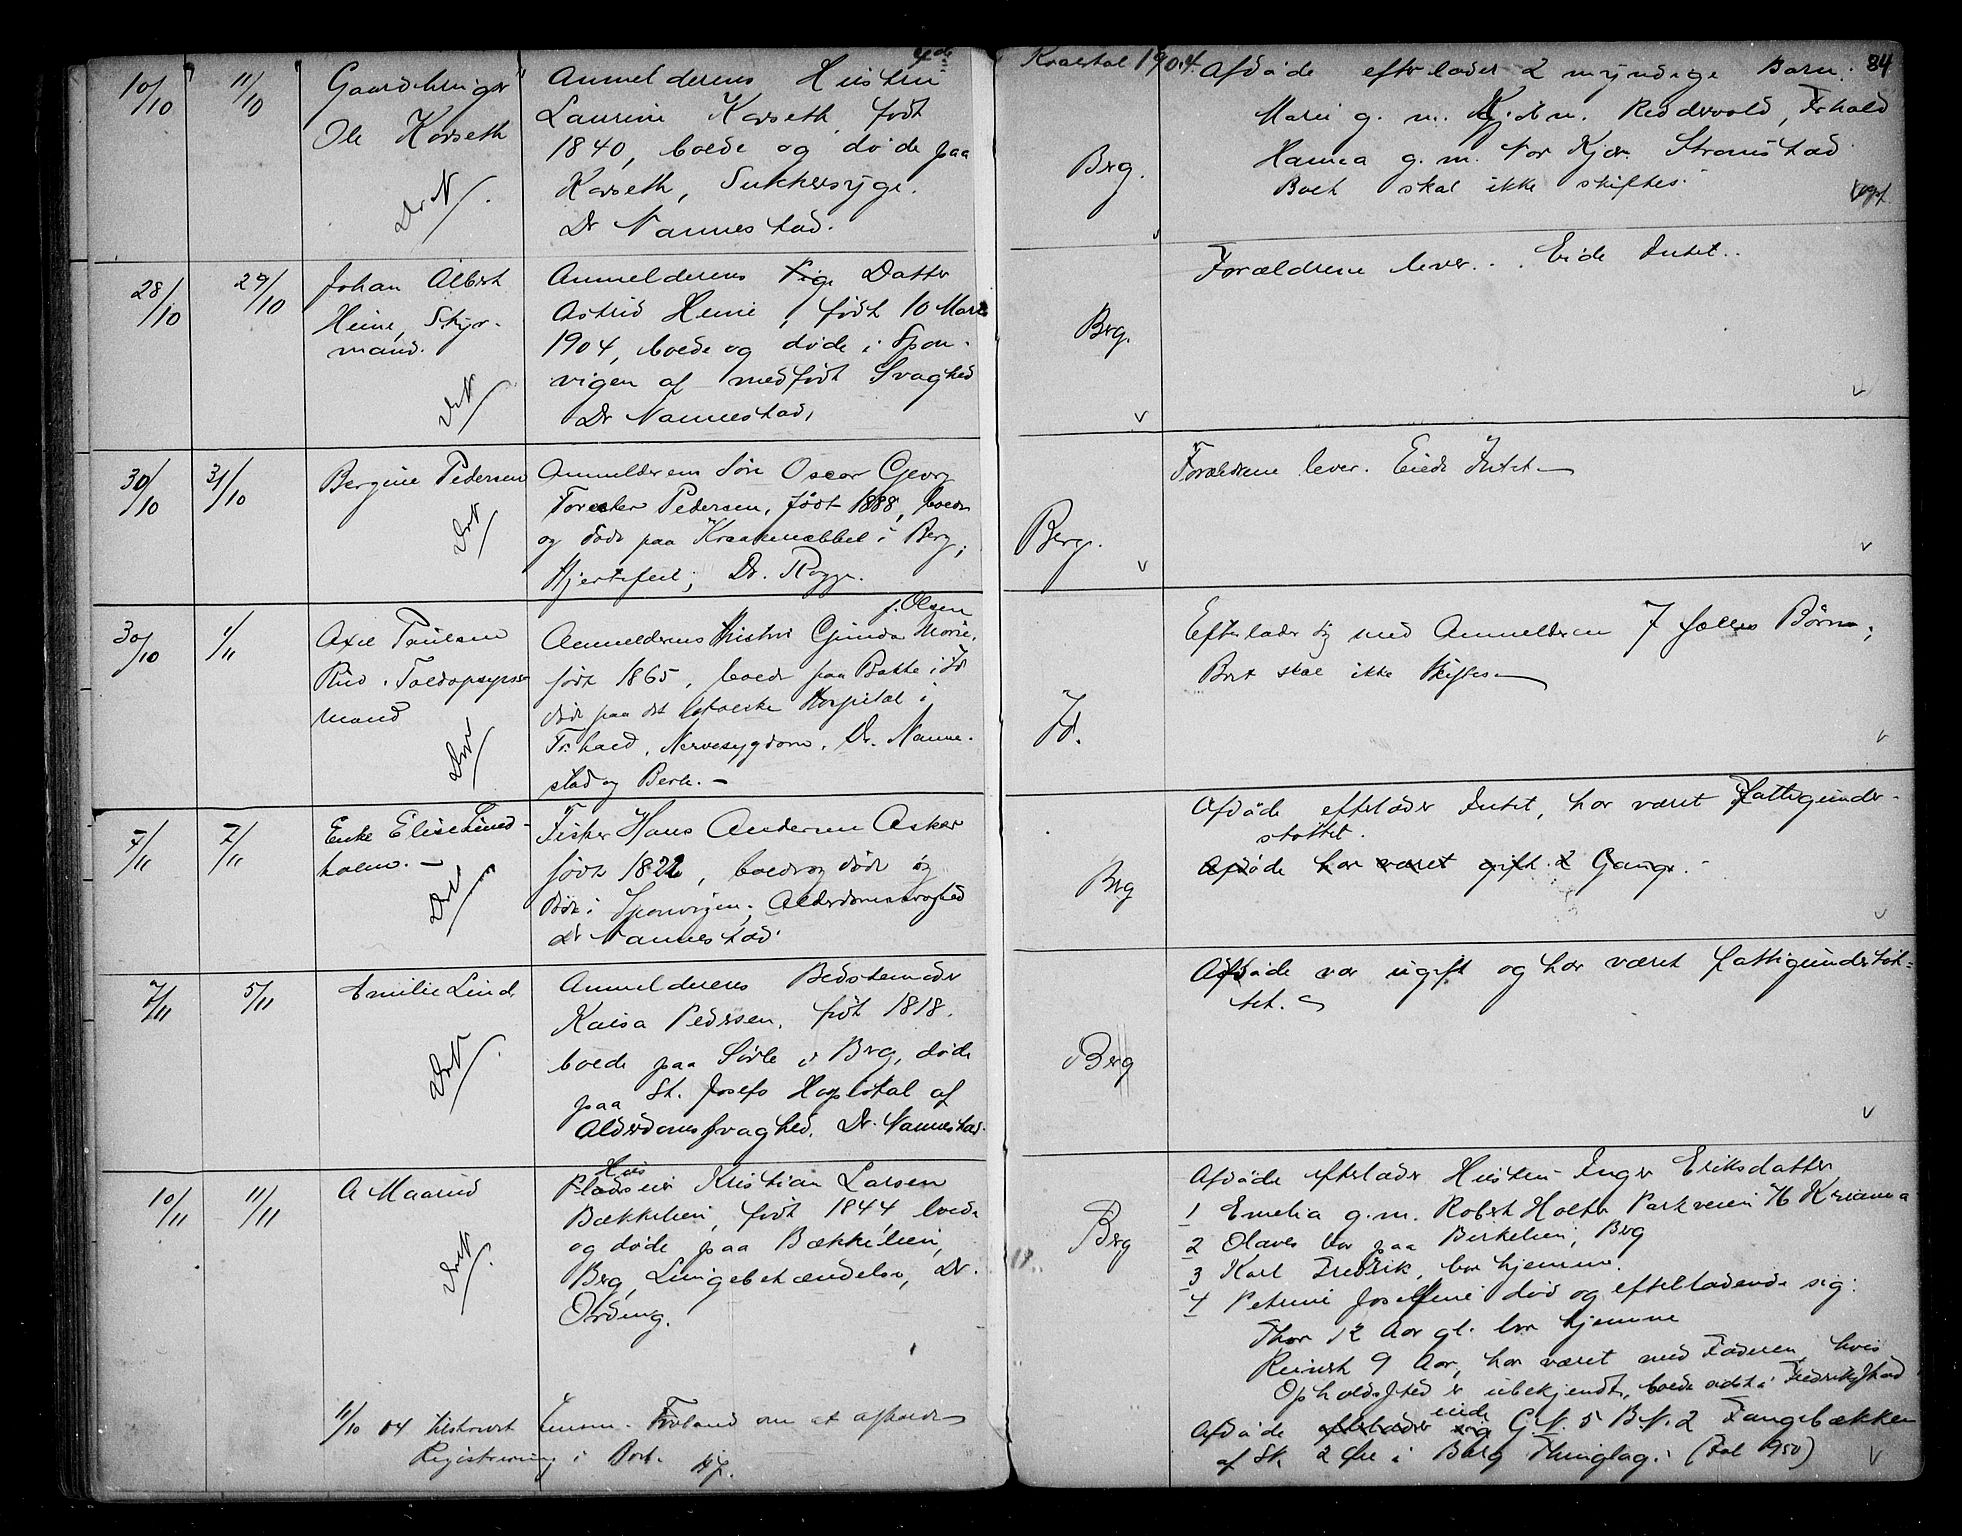 4de Kvartal 1904. 84
10/10 11/10
Gaardbruger
Ole Korseth
Dr N.
Anmelderens Hustru
Laurine Korseth, født
1840, boede og døde paa
Korseth, Sukkersyge.
Dr Nannestad.
Berg.
Afdøde efterlader 2 myndige Barn:
Marie g. m. Kjøbm. Reddervold, Frhald
Hanna g. m. Tor Kjær Strømstad
Boet skal ikke skiftes.
28/10 29/10
Johan Albert
Heine, Styr-
mand.
Dr N
Anmelderens Datter
Astrid Heine, født 10 Mars
1904, boede og døde i Spon-
vigen af medfødt Svaghed
Dr Nannestad,
Berg.
Forældrene lever. Eide Intet.
30/10 31/10
Bergine Pedersen
Dr N
Anmelderens Søn Oscar Georg
Pedersen, født 1888, boede
og døde paa Kraakenæbbet i Berg,
Hjertefeil; Dr. Rogge.
Berg.
Forældrene lever. Eiede Intet
30/10 1/11
Axel Paulsen
Rud. Toldopsyns-
mand
f. Olsen
Anmelderens Hustru Gunda Marie,
født 1865, boede paa Bakke i Id
døde paa det katolske Hospital i
Fr.hald, Nervesygdom, Dr. Nanne-
stad og Berle.
Id.
Efterlader sig med Anmelderen 7 fælles Børn;
Boet skal ikke skiftes
7/11 7/11
Enke Elise Lind-
holm.
Fisker Hans Andersen Asker
født 1822, boede og døde og
døde i Sponvigen, Alderdomssvaghed
Dr Nannestad.
Berg
Afdøde efterlader Intet, har været fattigunder-
støttet.
Afdøde har været gift 2 Gange.
7/11 5/11
Emilie Lind,
Dr N.
Anmelderens Bedstemoder
Kaisa Pedersen, født 1818.
boede paa Sørle i Berg, døde
paa St. Josefs Hospital af
Alderdomssvaghed. Dr. Nannestad.
Berg
Afdøde var ugift og har været fattigunderstøt-
tet.
10/11 11/11
A Maarud
Hus
Pladseier Kristian Larsen
Bækkelien, født 1844, boede
og døde paa Bækkelien,
Berg, Lungebetændelse, Dr.
Ording.
Berg
Afdøde efterlader Hustru Inger Eriksdatter
1 Emelia g. m. Robert Holter Parkveien 76 Kr.iania
2 Olaves bor paa Birkelien, Berg
3 Karl Fredrik, bor hjemme.
4 Petrine Josefine død og efterladende sig:
Thor 12 Aar gl. bor hjemme
Reinert 9 Aar, har været med Faderen, hvis
Opholdssted er ubekjendt, boede sidst i Fredrikshald
eiede
Afdøde efterlader sig G.N. 5 B.N. 2 Fangebækken
af Sk. 2 Øre i Berg Thinglag. (Fol 950)
11/10 04 tilskrevet Lensm. Froland om at afholde
Registrering i Boet.